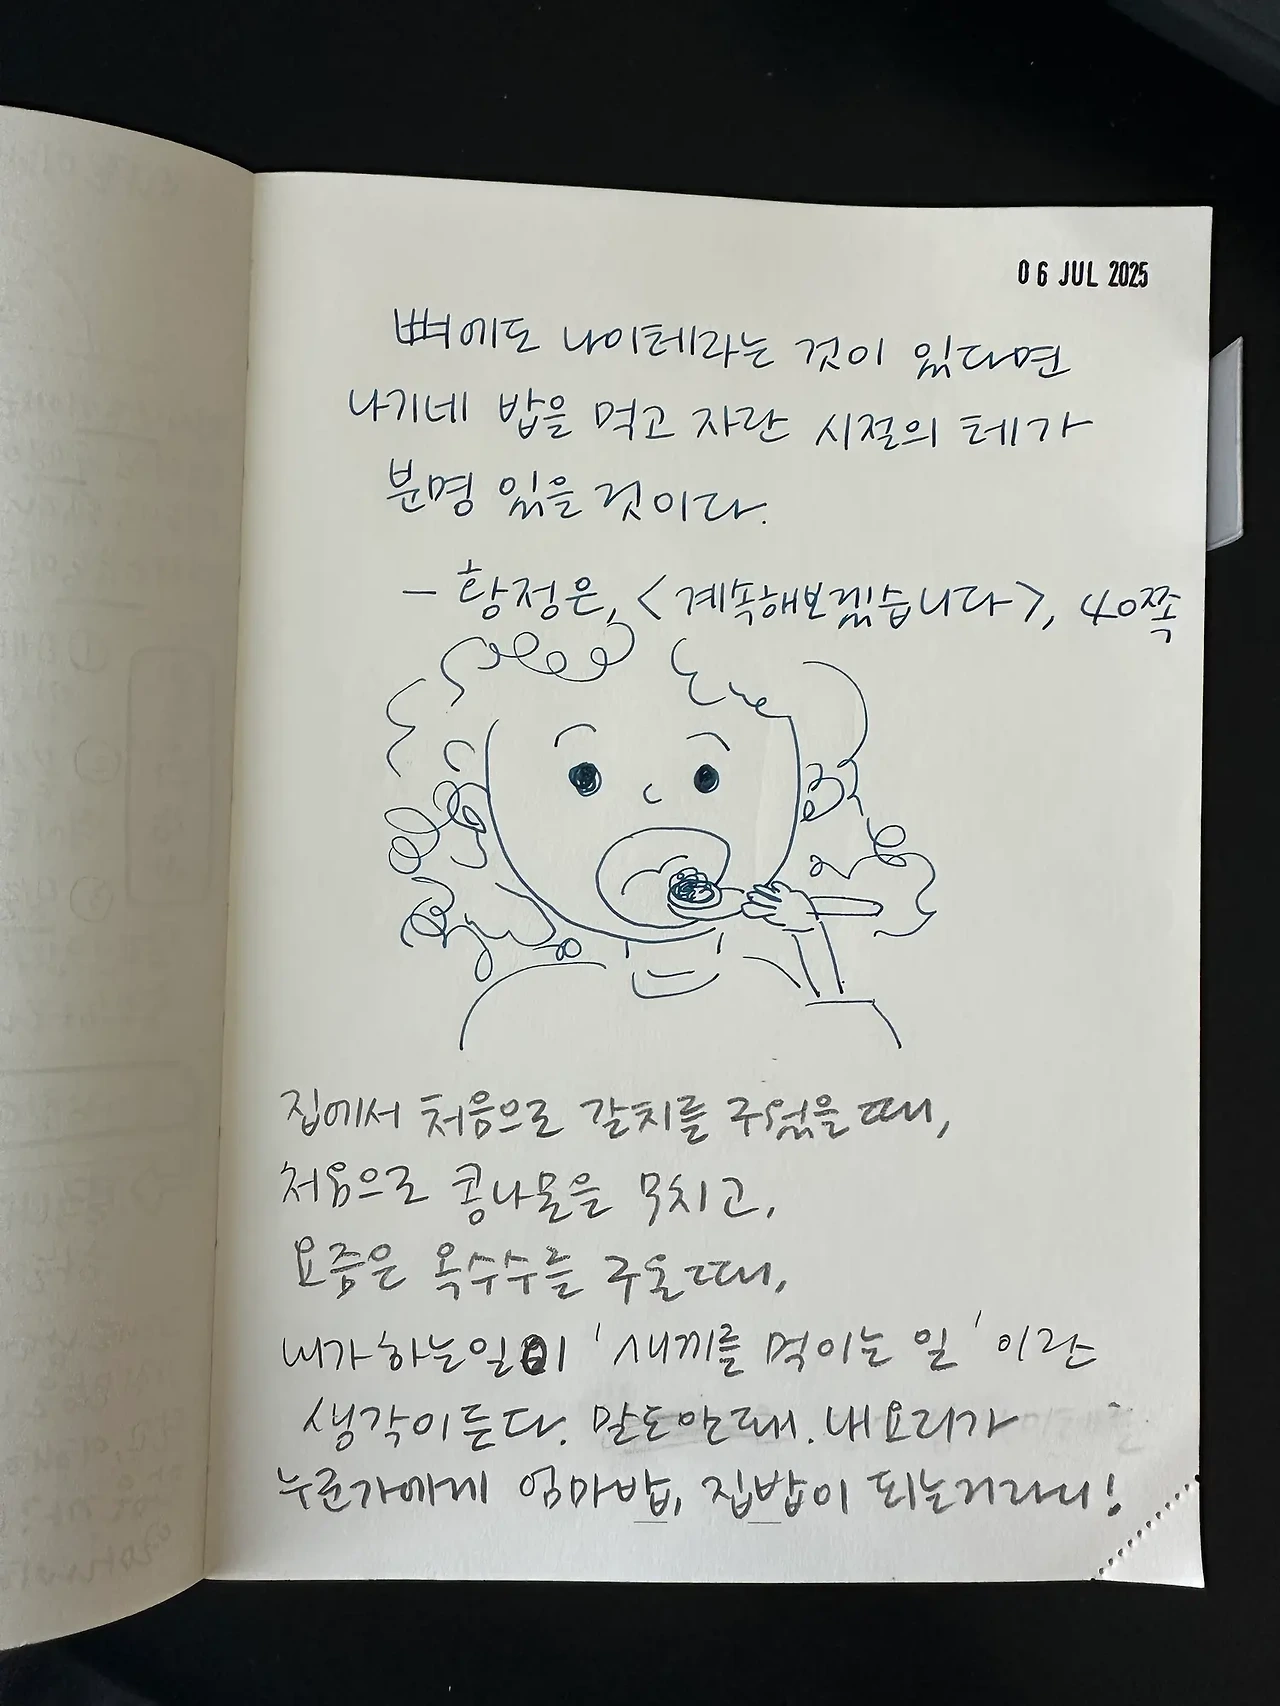 06 JUL 2025
뼈에도 나이테라는 것이 있다면
나기네 밥을 먹고 자란 시절의 테가
분명 있을 것이다.
- 황정은, <계속해보겠습니다>, 40쪽
집에서 처음으로 갈치를 구웠을 때,
처음으로 콩나물을 무치고,
요즘은 옥수수를 구울때,
내가하는일이 '새끼를 먹이는 일' 이란
생각이든다. 말도안돼. 내요리가
누군가에게 엄마밥, 집밥이 되는거라니!